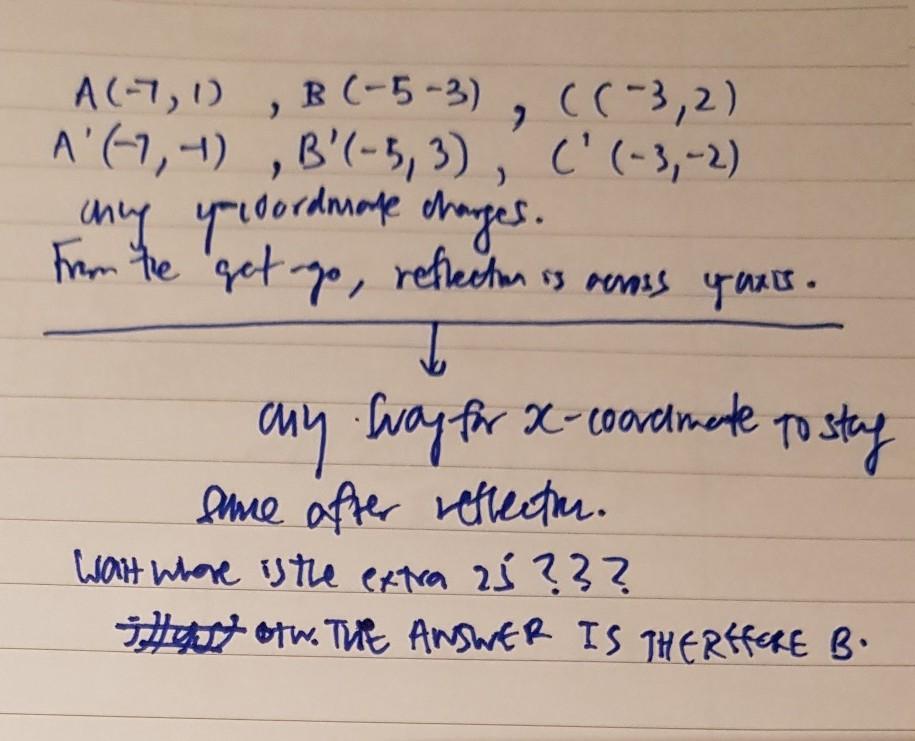 A(-7,1) , B (-5-3) , C(-3,2)
A'(-7,-1) , B'(-5,3) , C' (-3,-2)
only y-coordinate changes.
From the get-go, reflection is across y axis.
only way for x-coordinate to stay
same after reflection.
Wait where is the extra 25 ???
otw. THE ANSWER IS THEREFORE B.